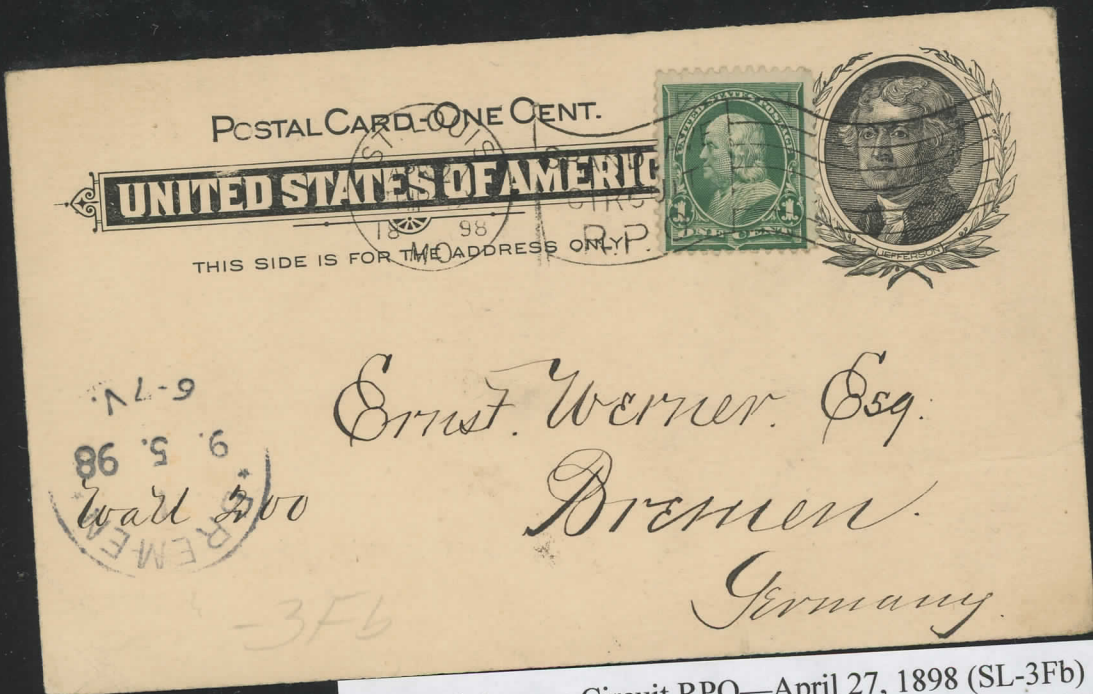 POSTAL CARD-ONE CENT.
UNITED STATES OF AMERIC
THIS SIDE IS FOR THE ADDRESS ONLY.
ST. LOUIS
18 98
MO
CIRC
R.P.
UNITED STATES POSTAGE
1 1
ONE CENT
JEFFERSON
Ernst. Werner. Esq.
Bremen.
Germany.
Wall 200
BREMEN
9. 5. 98
6-7 V.
-3Fb
Circuit RPO—April 27, 1898 (SL-3Fb)